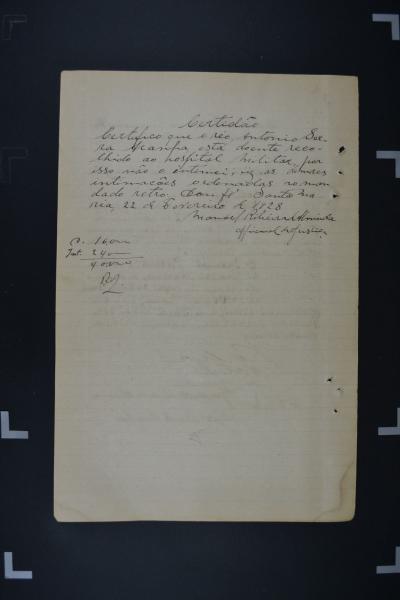 Certidão
Certifico que o réo, Antonio
esta doente reco-
lhido ao hospital militar, por
isso não o intimei, e as demais
intimações ordenadas no man-
dado retro. Dou fé. Santa Ma-
ria, 22 de Fevereiro de 1928
Manoel Ribeiro Almeida
Official de Justiça